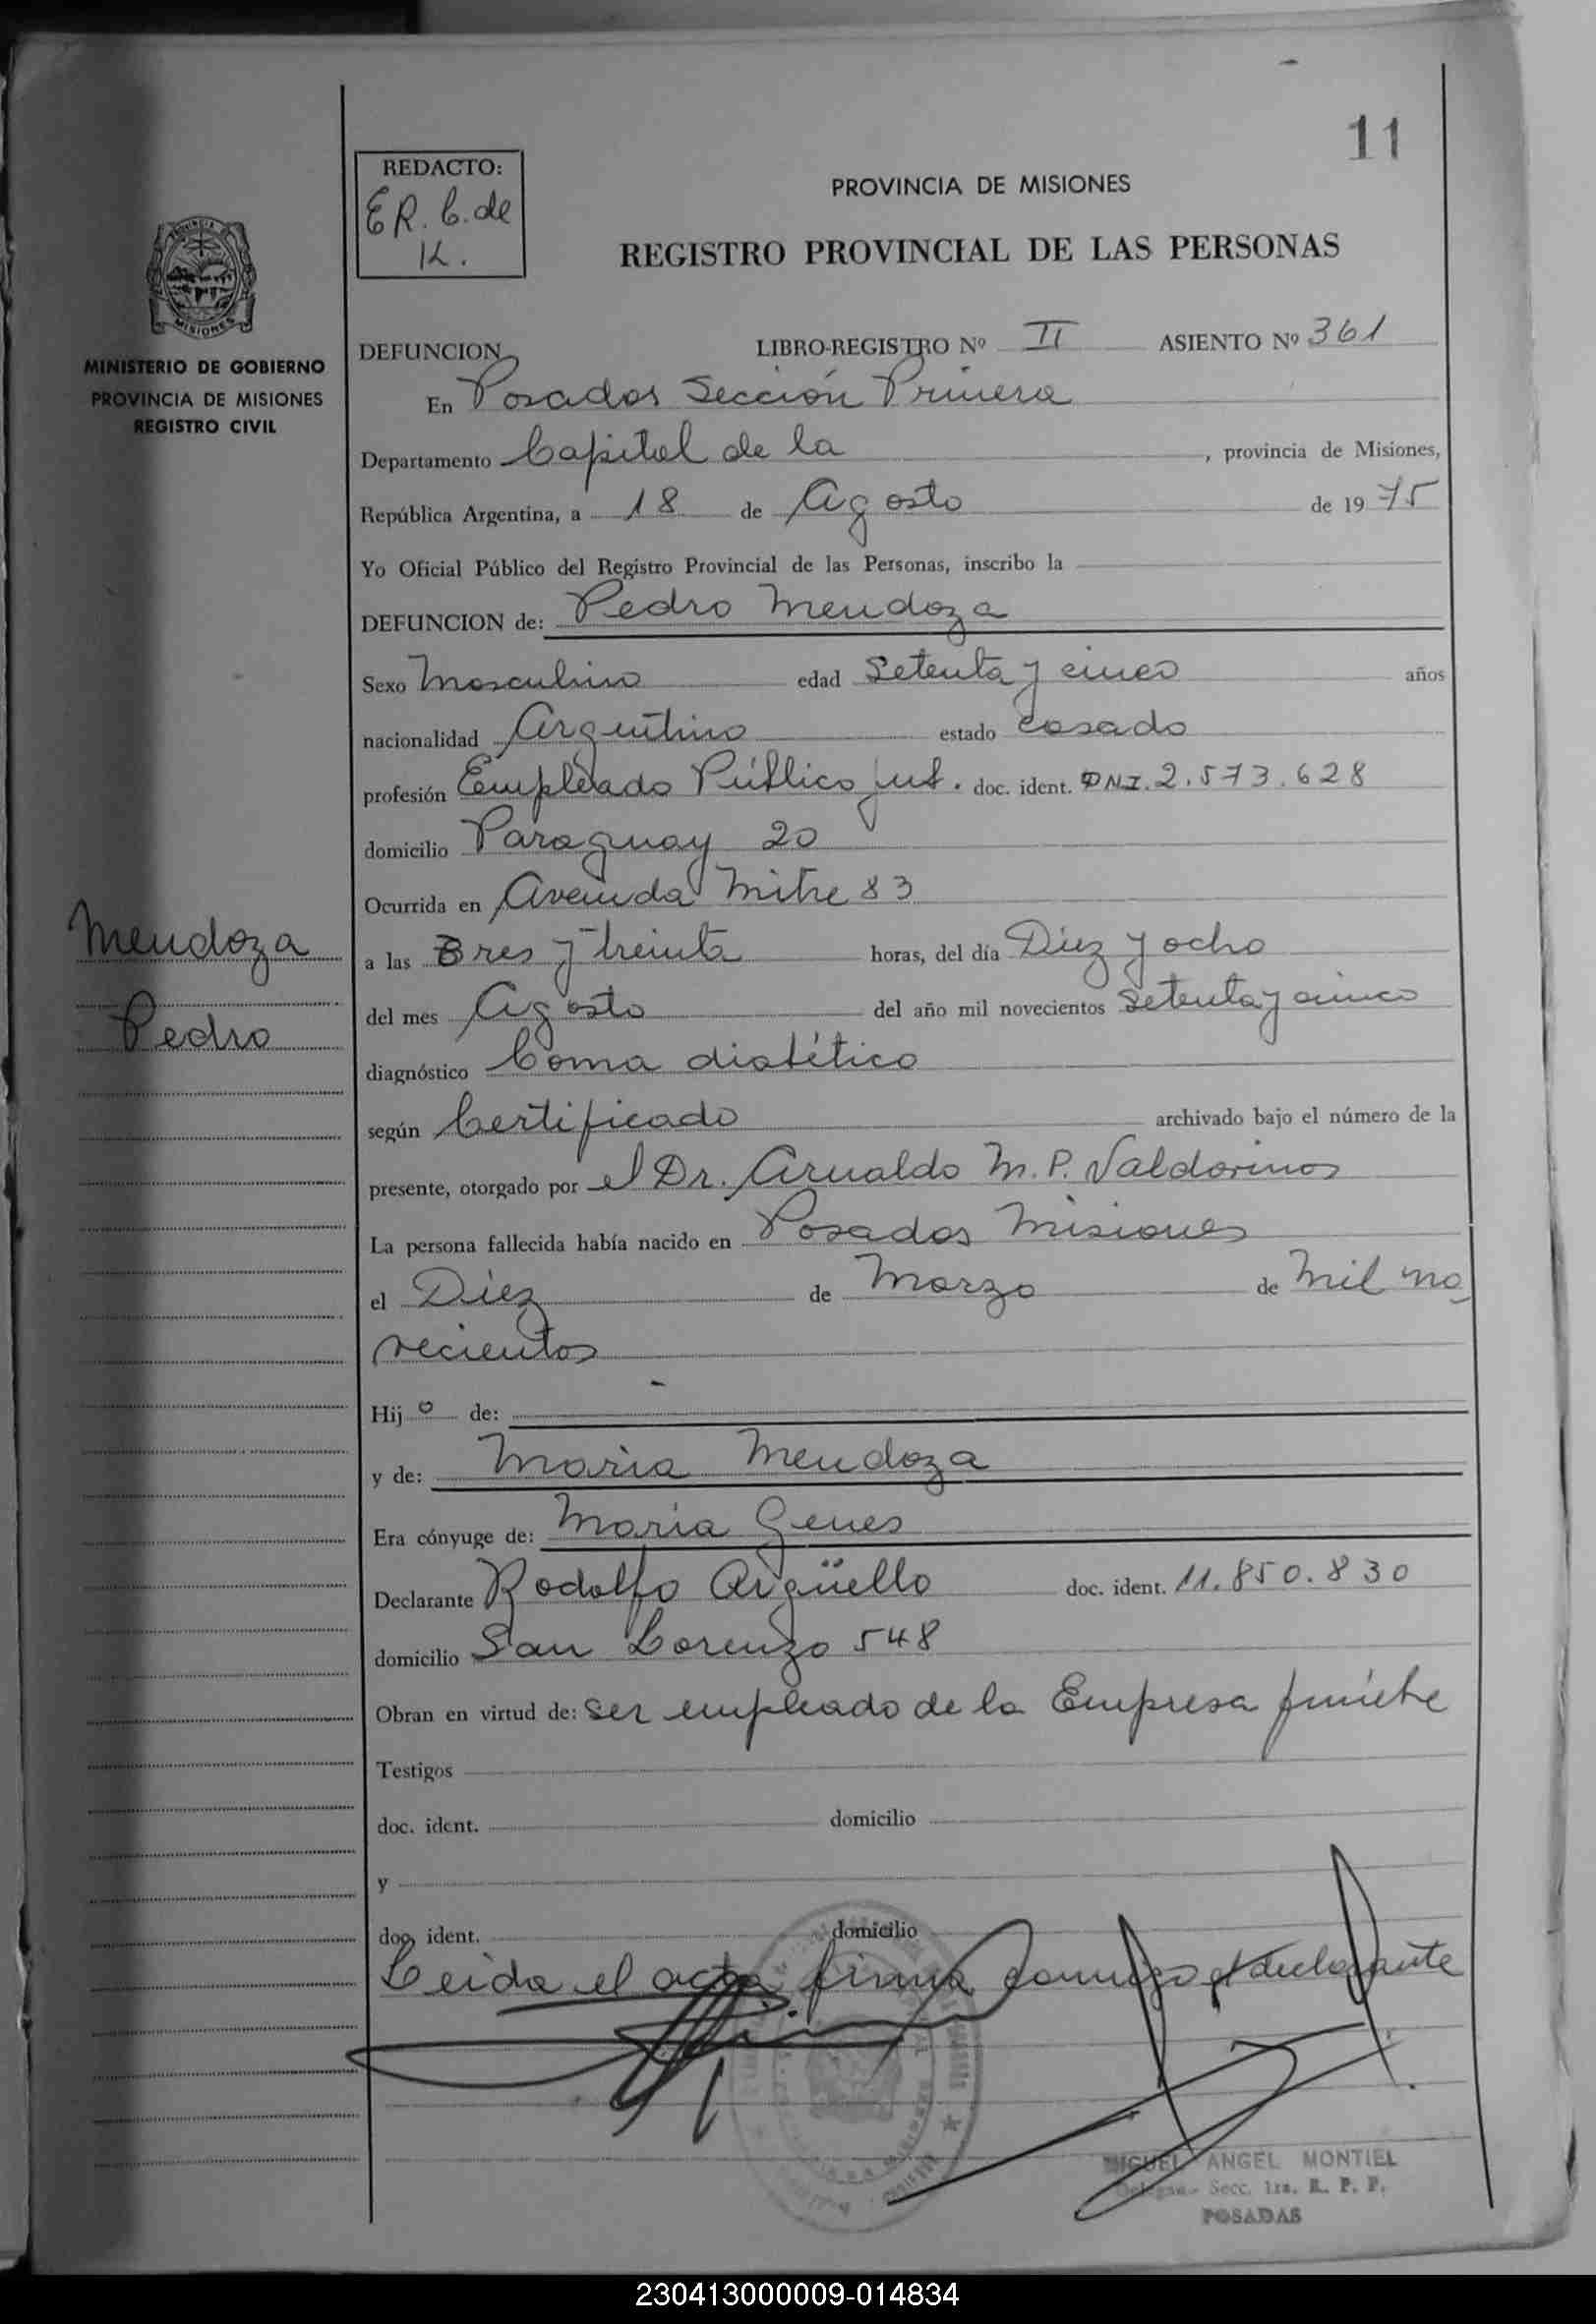 11
REDACTO:
ER. C. de
K.
PROVINCIA DE MISIONES
REGISTRO PROVINCIAL DE LAS PERSONAS
MISIONES
MINISTERIO DE GOBIERNO
PROVINCIA DE MISIONES
REGISTRO CIVIL
DEFUNCION LIBRO-REGISTRO Nº II ASIENTO Nº 361
En Posadas Sección Primera
Departamento Capital de la , provincia de Misiones,
República Argentina, a 18 de Agosto de 1975
Yo Oficial Público del Registro Provincial de las Personas, inscribo la
DEFUNCION de: Pedro Mendoza
Sexo Masculino edad Setenta y cinco años
nacionalidad Argentino estado casado
profesión Empleado Público jub. doc. ident. DNI. 2.573.628
domicilio Paraguay 20
Ocurrida en Avenida Mitre 83
Mendoza
a las Tres y treinta horas, del día Diez y ocho
Pedro
del mes Agosto del año mil novecientos Setenta y cinco
diagnóstico Coma diabético
según Certificado archivado bajo el número de la
presente, otorgado por el Dr. Arnaldo M. P. Valdovinos
La persona fallecida había nacido en Posadas Misiones
el Diez de Marzo de Mil no
vecientos
Hijo de:
y de: Maria Mendoza
Era cónyuge de: Maria Genes
Declarante Rodolfo Argüello doc. ident. 11.850.830
domicilio San Lorenzo 548
Obran en virtud de: Ser empleado de la Empresa fúnebre
Testigos
doc. ident. domicilio
y
doc. ident. domicilio
Leida el acta firma conmigo el declarante
MIGUEL ANGEL MONTIEL
Secc. 1ra. R. P. P.
POSADAS
230413000009-014834